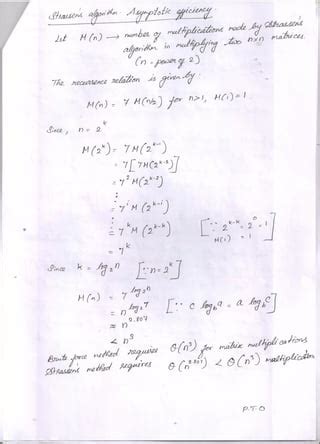 Strassens algorithm - Asymptotic efficiency:
Let M(n) → number of multiplications made by Strassens
algorithm in multiplying two n×n matrices.
(n - power of 2)
The recurrence relation is given by:
M(n) = 7 M(n/2) for n>1, M(1)=1
Since, n = 2^k
M(2^k) = 7 M(2^k-1)
= 7[7M(2^k-2)]
= 7^2 M(2^k-2)
⋮
= 7^i M(2^k-i)
⋮
= 7^k M(2^k-k) [∵ 2^k-k = 2^0 = 1
M(1) = 1]
= 7^k
Since k = log_2 n [∵ n = 2^k]
M(n) = 7^log_2 n
= n^log_2 7 [∵ c log_b a = a log_b c]
≈ n^2.807
< n^3
Brute force method requires Θ(n^3) for matrix multiplications
Strassens method requires Θ(n^2.807) < Θ(n^3) multiplication
P.T.O